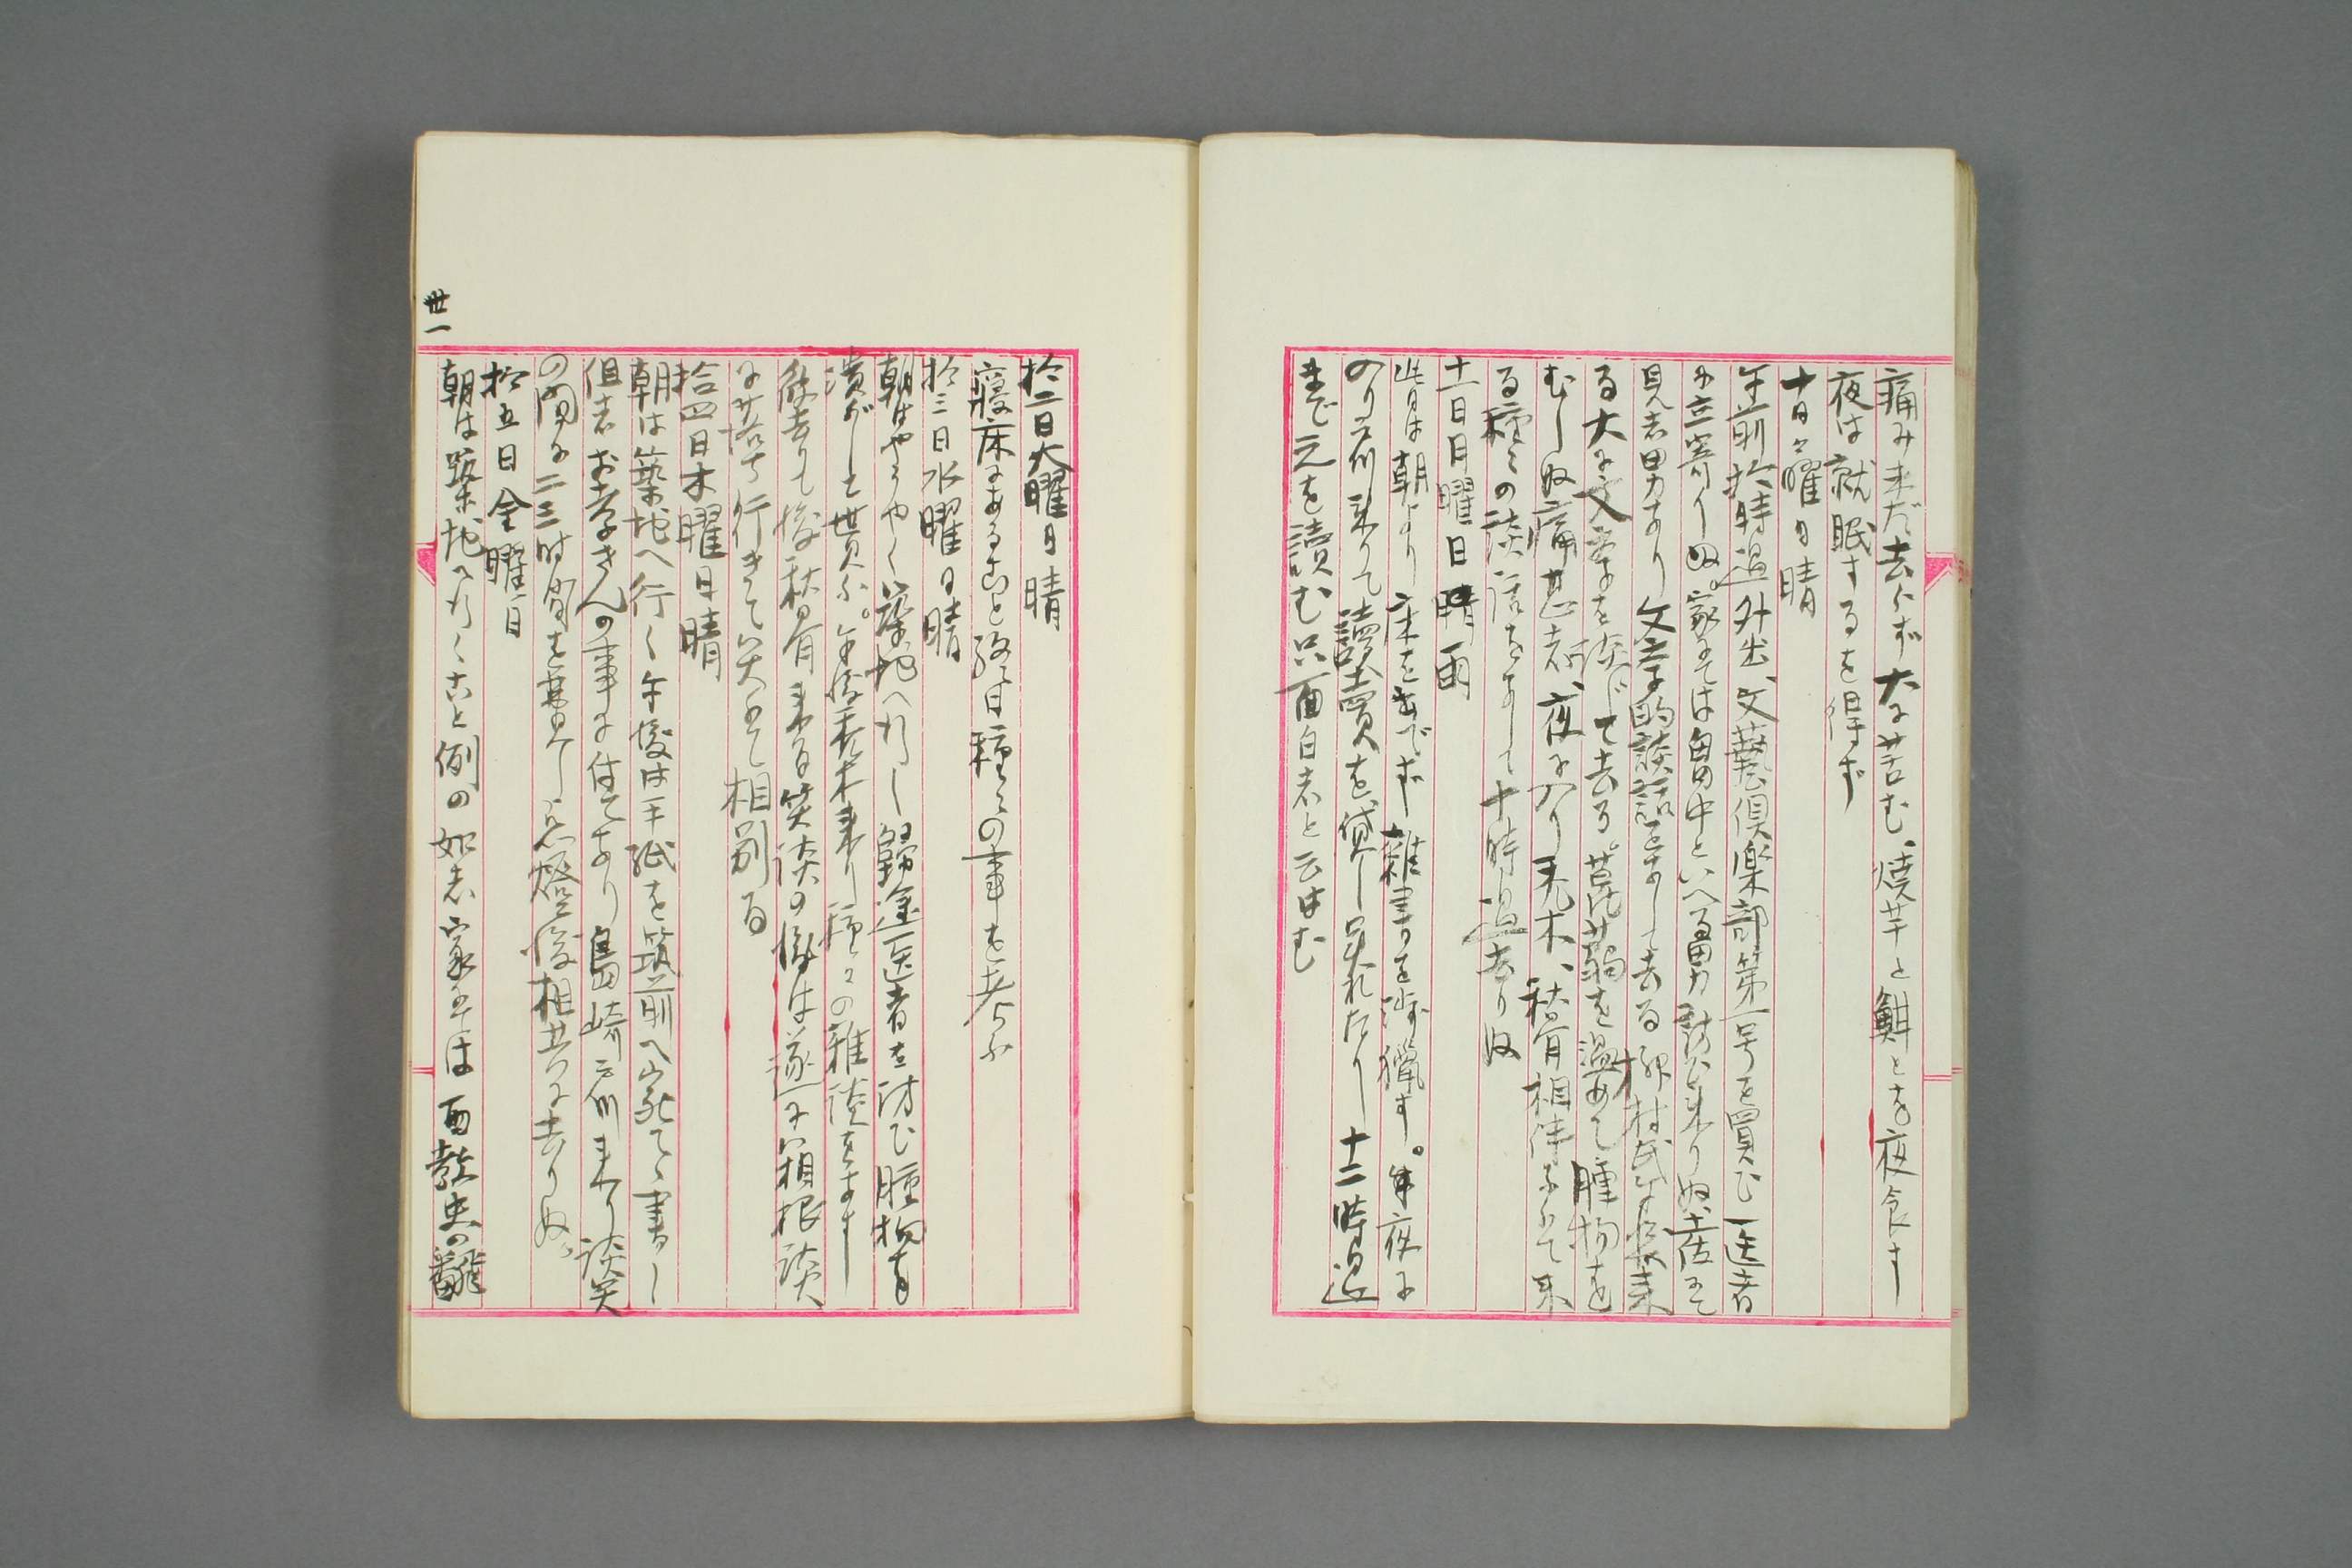 痛み未だ去らず大に苦む、焼芋と鮮とを夜食す
夜は就眠するを得ず
十日日曜日晴
午前拾時過外出、文藝倶楽部第一号を買ひ医者
に立寄りぬ。家にては畠中といへる男訪ひ来りぬ、
見志男あり文学的談話をなして去る柳村氏
る大に文学を談じて去る。蒟蒻を温めて腫物を
むしぬ痛甚志、夜に入り、秋骨相伴ふて来
る種々の談話をなして十時過去りぬ
十一日月曜日晴雨
此日は朝より床を出でず雑書を渉猟す。夜に
のり来りて讀賣を貸し呉れたり十二時過
まで之を讀む只面白志と云はむ
拾二日火曜日晴
寝床にあること終日種々の事を考ふ
拾三日水曜日晴
朝はやうやく築地へ行し歸途医者を訪ひ腫物を
潰がしを貰ふ。午後来り種々の雑談をなす
彼去りて後秋骨来る笑談の後は遂に箱根談
に落ち行きて笑ふて相別る
拾四日木曜日晴
朝は築地へ行く午後は手紙を筑前へ宛てゝ書し
但志お孝さんの事に付てあり島崎来り談笑
の間に二三時間を費し点燈後相共に去りぬ。
拾五日金曜日
朝は築地へ行くこと例の如志家にては西教史の飜
卅一